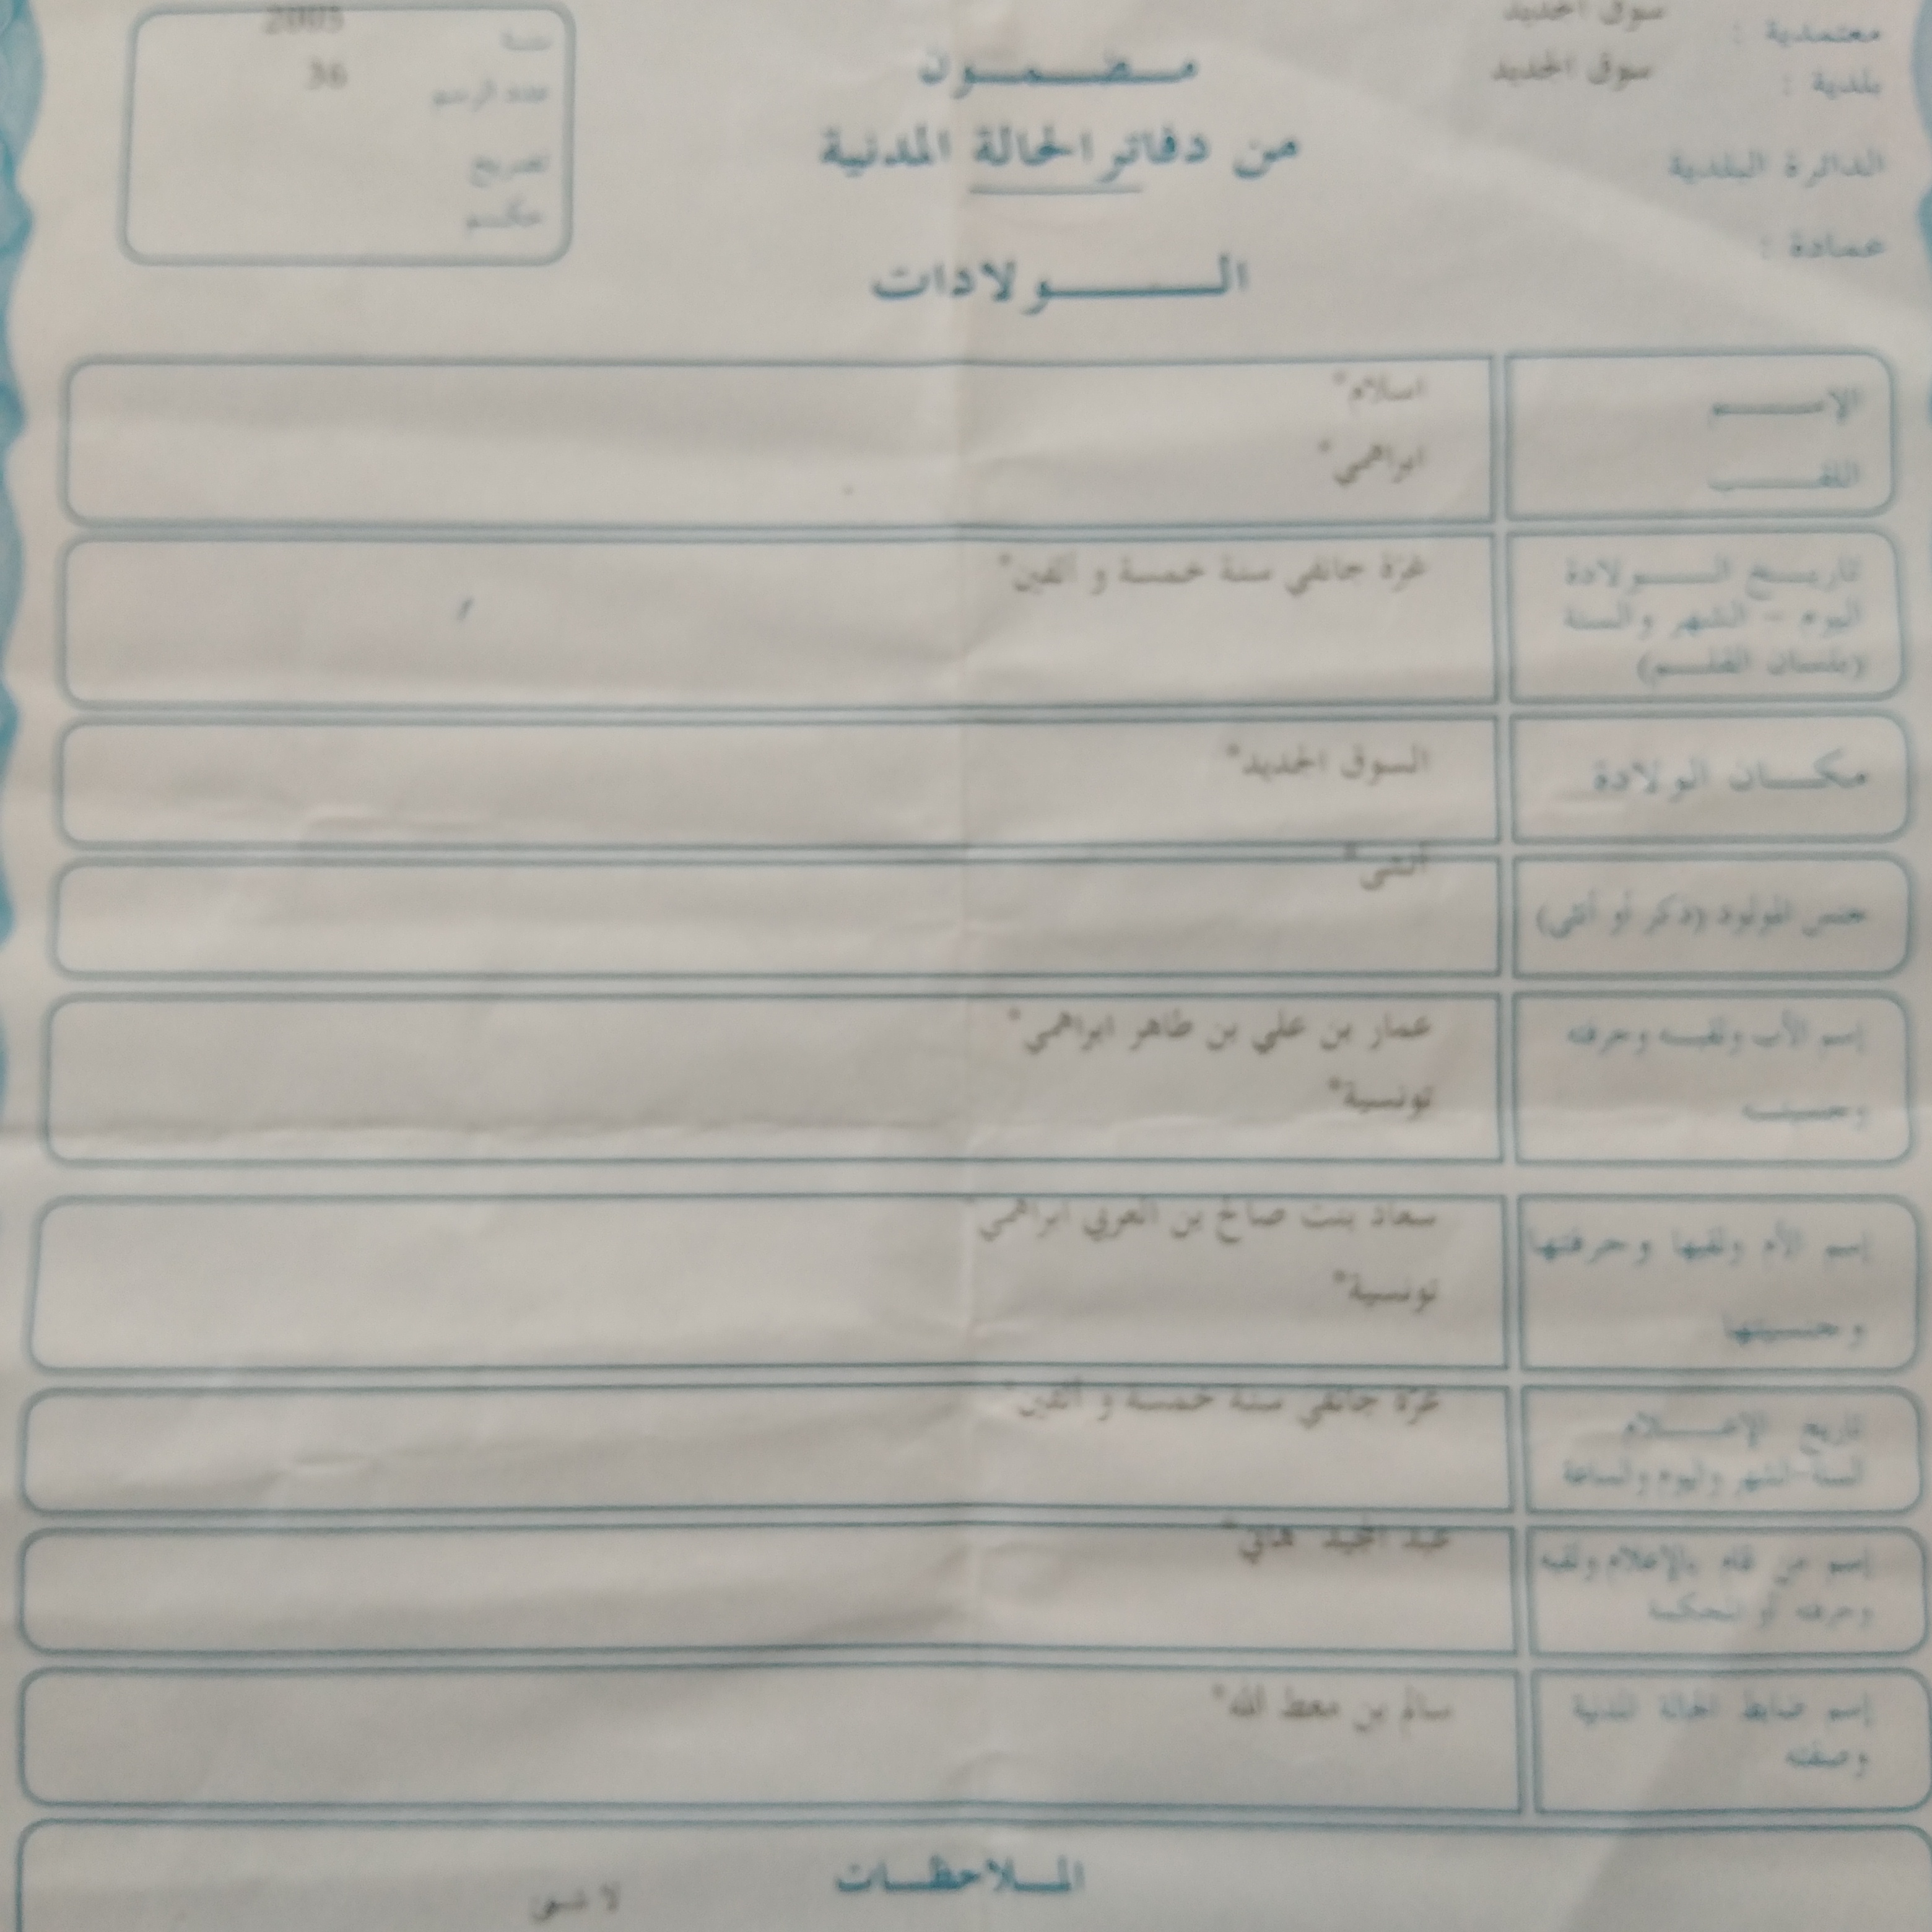 معتمدية : سوق الجديد
بلدية : سوق الجديد
الدائرة البلدية
عمادة :
مضمون
من دفاتر الحالة المدنية
الولادات
سنة 2005
عدد الرسم 36
تصريح
حكم
الإسم اسلام*
اللقب ابراهمي*
تاريخ الولادة غرة جانفي سنة خمسة و ألفين*
اليوم - الشهر والسنة
(بلسان القلم)
مكان الولادة السوق الجديد*
جنس المولود (ذكر أو أنثى) أنثى*
إسم الأب ولقبه وحرفته عمار بن علي بن طاهر ابراهمي*
وجنسيته تونسية*
إسم الأم ولقبها وحرفتها سعاد بنت صالح بن العربي ابراهمي*
وجنسيتها تونسية*
تاريخ الإعلام غرة جانفي سنة خمسة و ألفين*
السنة-الشهر واليوم والساعة
إسم من قام بالإعلام ولقبه عبد المجيد هاني*
وحرفته أو المحكمة
إسم ضابط الحالة المدنية سالم بن معط الله*
وصفته
الملاحظات
لا شيء